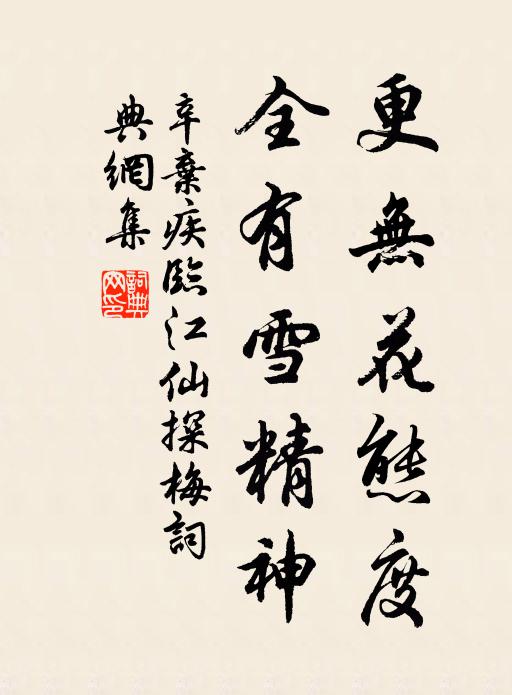 更無花態度
全有雪精神
辛棄疾臨江仙探梅詞
典網集
詞典網印